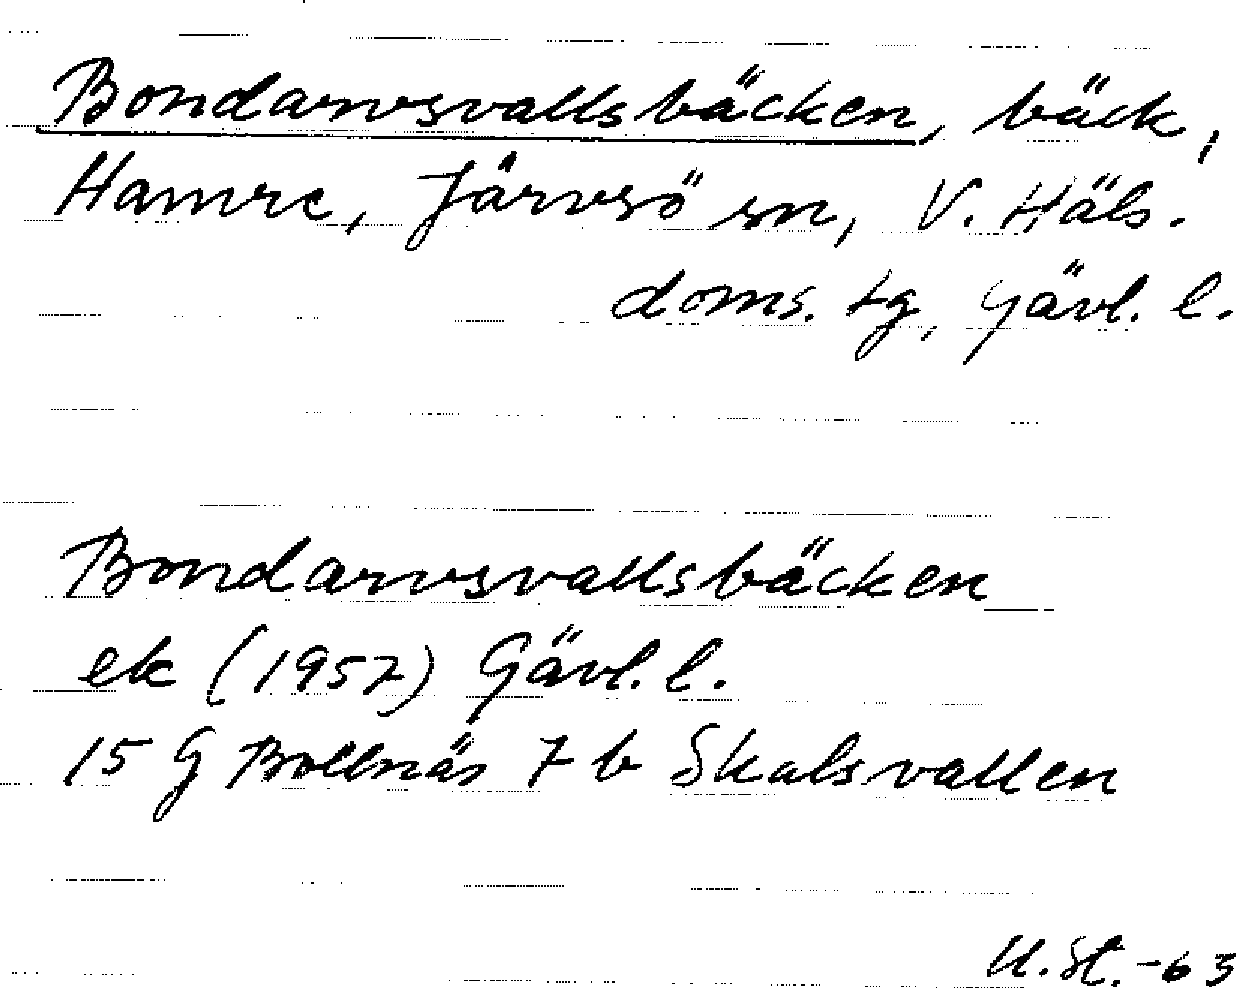 Bondarvsvallsbäcken, bäck,
Hamre, Järvsö sn, V. Häls.
doms. tg, Gävl. l.
Bondarvsvallsbäcken
ek (1957) Gävl. l.
15 G Bollnäs 7 b Skalsvallen
U. St. -63